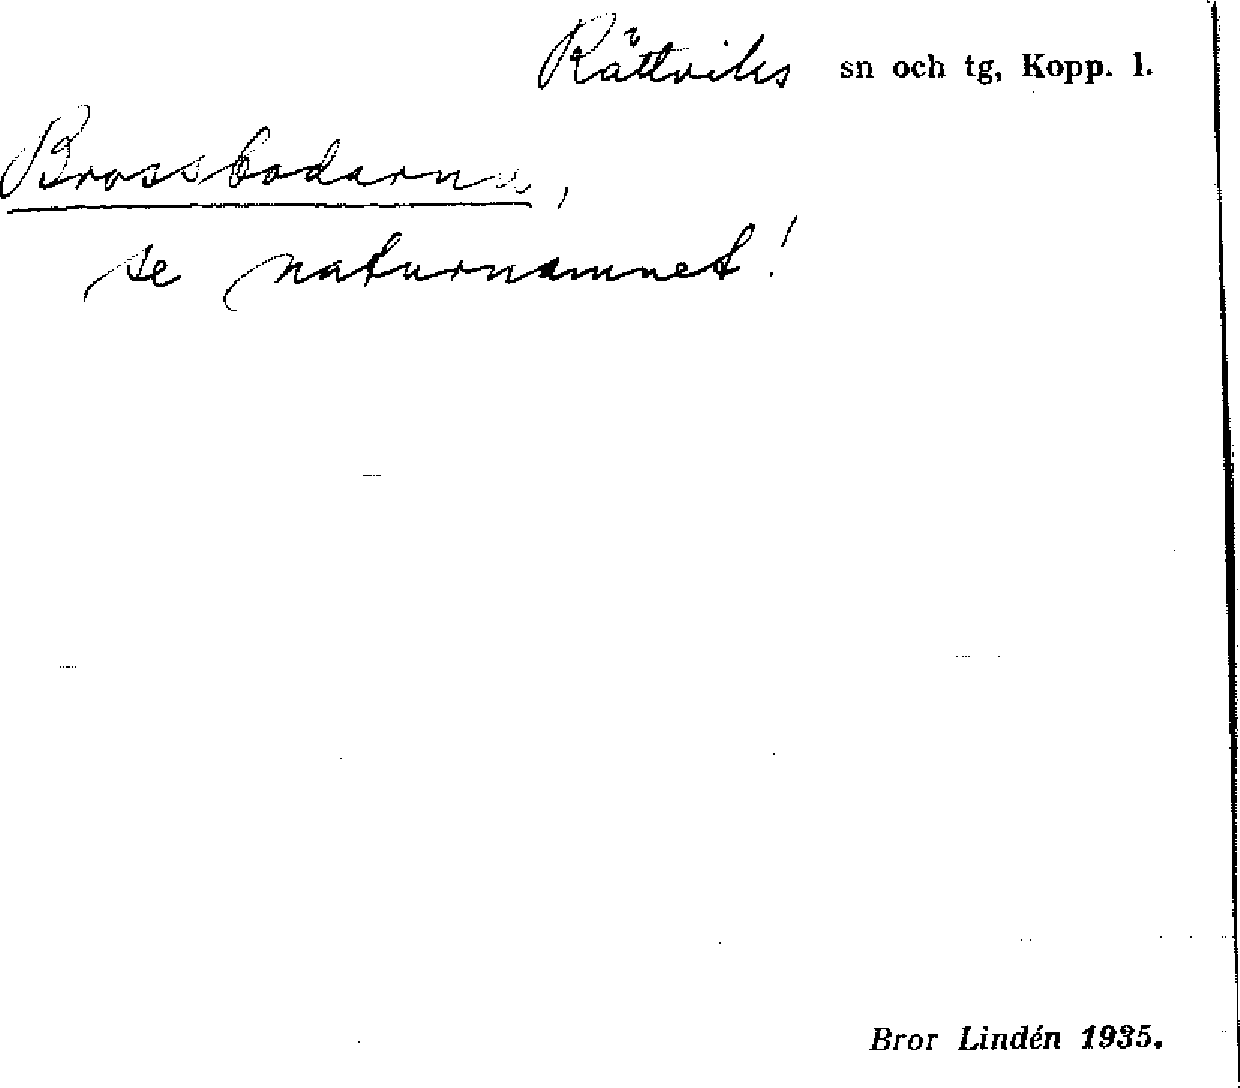 Rättviks sn och tg, Kopp. l.
Brossbodarna,
se naturnamnet!
Bror Lindén 1935.